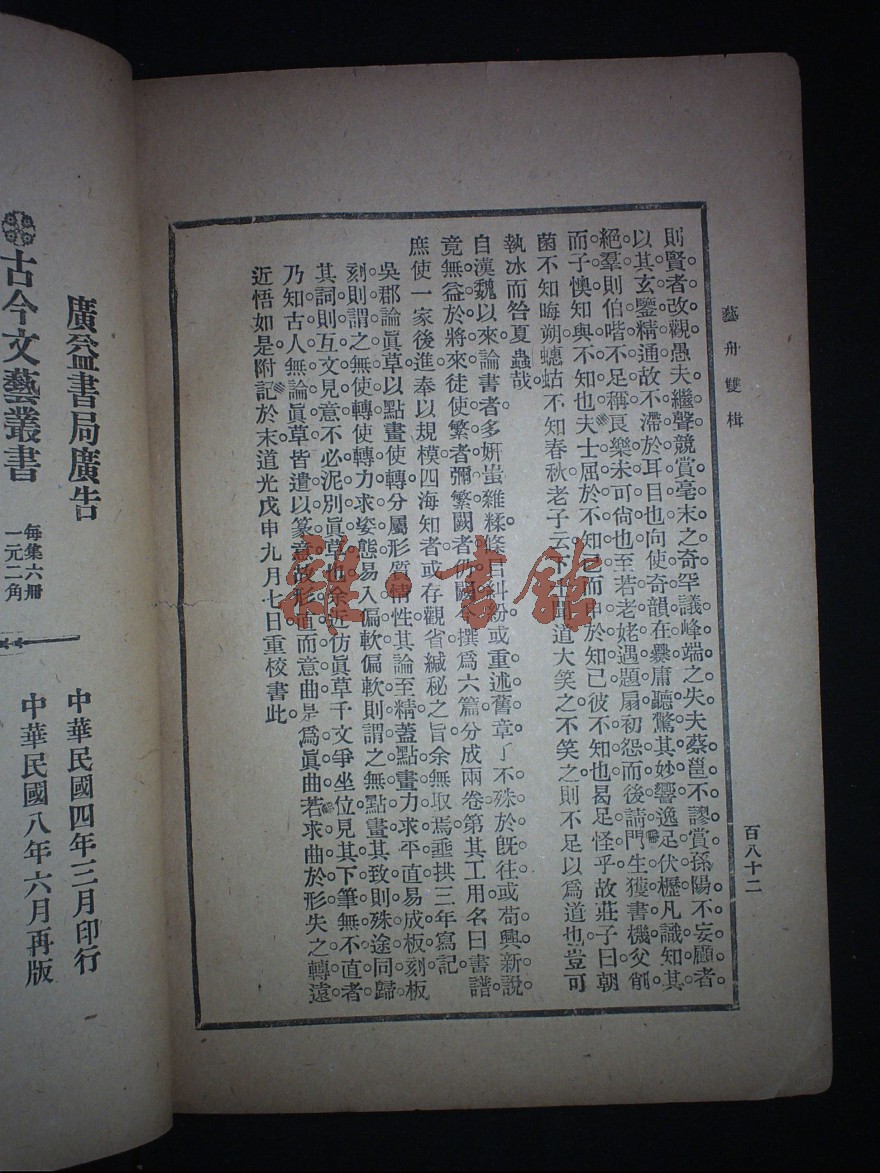 藝舟雙楫
百八十二
則賢者改觀愚夫繼聲競賞毫末之奇罕議峰端之失夫蔡邕不謬賞孫陽不妄顧者
以其玄鑒精通故不滯於耳目也向使奇韻在爨庸聽驚其妙響逸足伏櫪凡識知其
絕羣則伯喈不足稱良樂未可尙也至若老姥遇題扇初怨而後請門生獲書機父削
而子懊知與不知也夫士屈於不知己而申於知己彼不知也曷足怪乎故莊子曰朝
菌不知晦朔蟪蛄不知春秋老子云下士聞道大笑之不笑之則不足以爲道也豈可
執冰而咎夏蟲哉
自漢魏以來論書者多姸蚩雜糅條目糾紛或重述舊章了不殊於旣往或苟興新說
竟無益於將來徒使繁者彌繁闕者仍闕今撰爲六篇分成兩卷第其工用名曰書譜
庶使一家後進奉以規模四海知者或存觀省緘秘之旨余無取焉垂拱三年寫記
吳郡論眞草以點畫使轉分屬形質情性其論至精蓋點畫力求平直易成板刻板
刻則謂之無使轉使轉力求姿態易入偏軟偏軟則謂之無點畫其致則殊途同歸
其詞則互文見意不必泥別眞草也余近仿眞草千文爭坐位見其下筆無不直者
乃知古人無論眞草皆遣以篆意故形直而意曲是爲眞曲若求曲於形失之轉遠
近悟如是附記於末道光戊申九月七日重校書此
廣益書局廣告
古今文藝叢書
每集六冊
一元二角
中華民國四年三月印行
中華民國八年六月再版
雜·書館